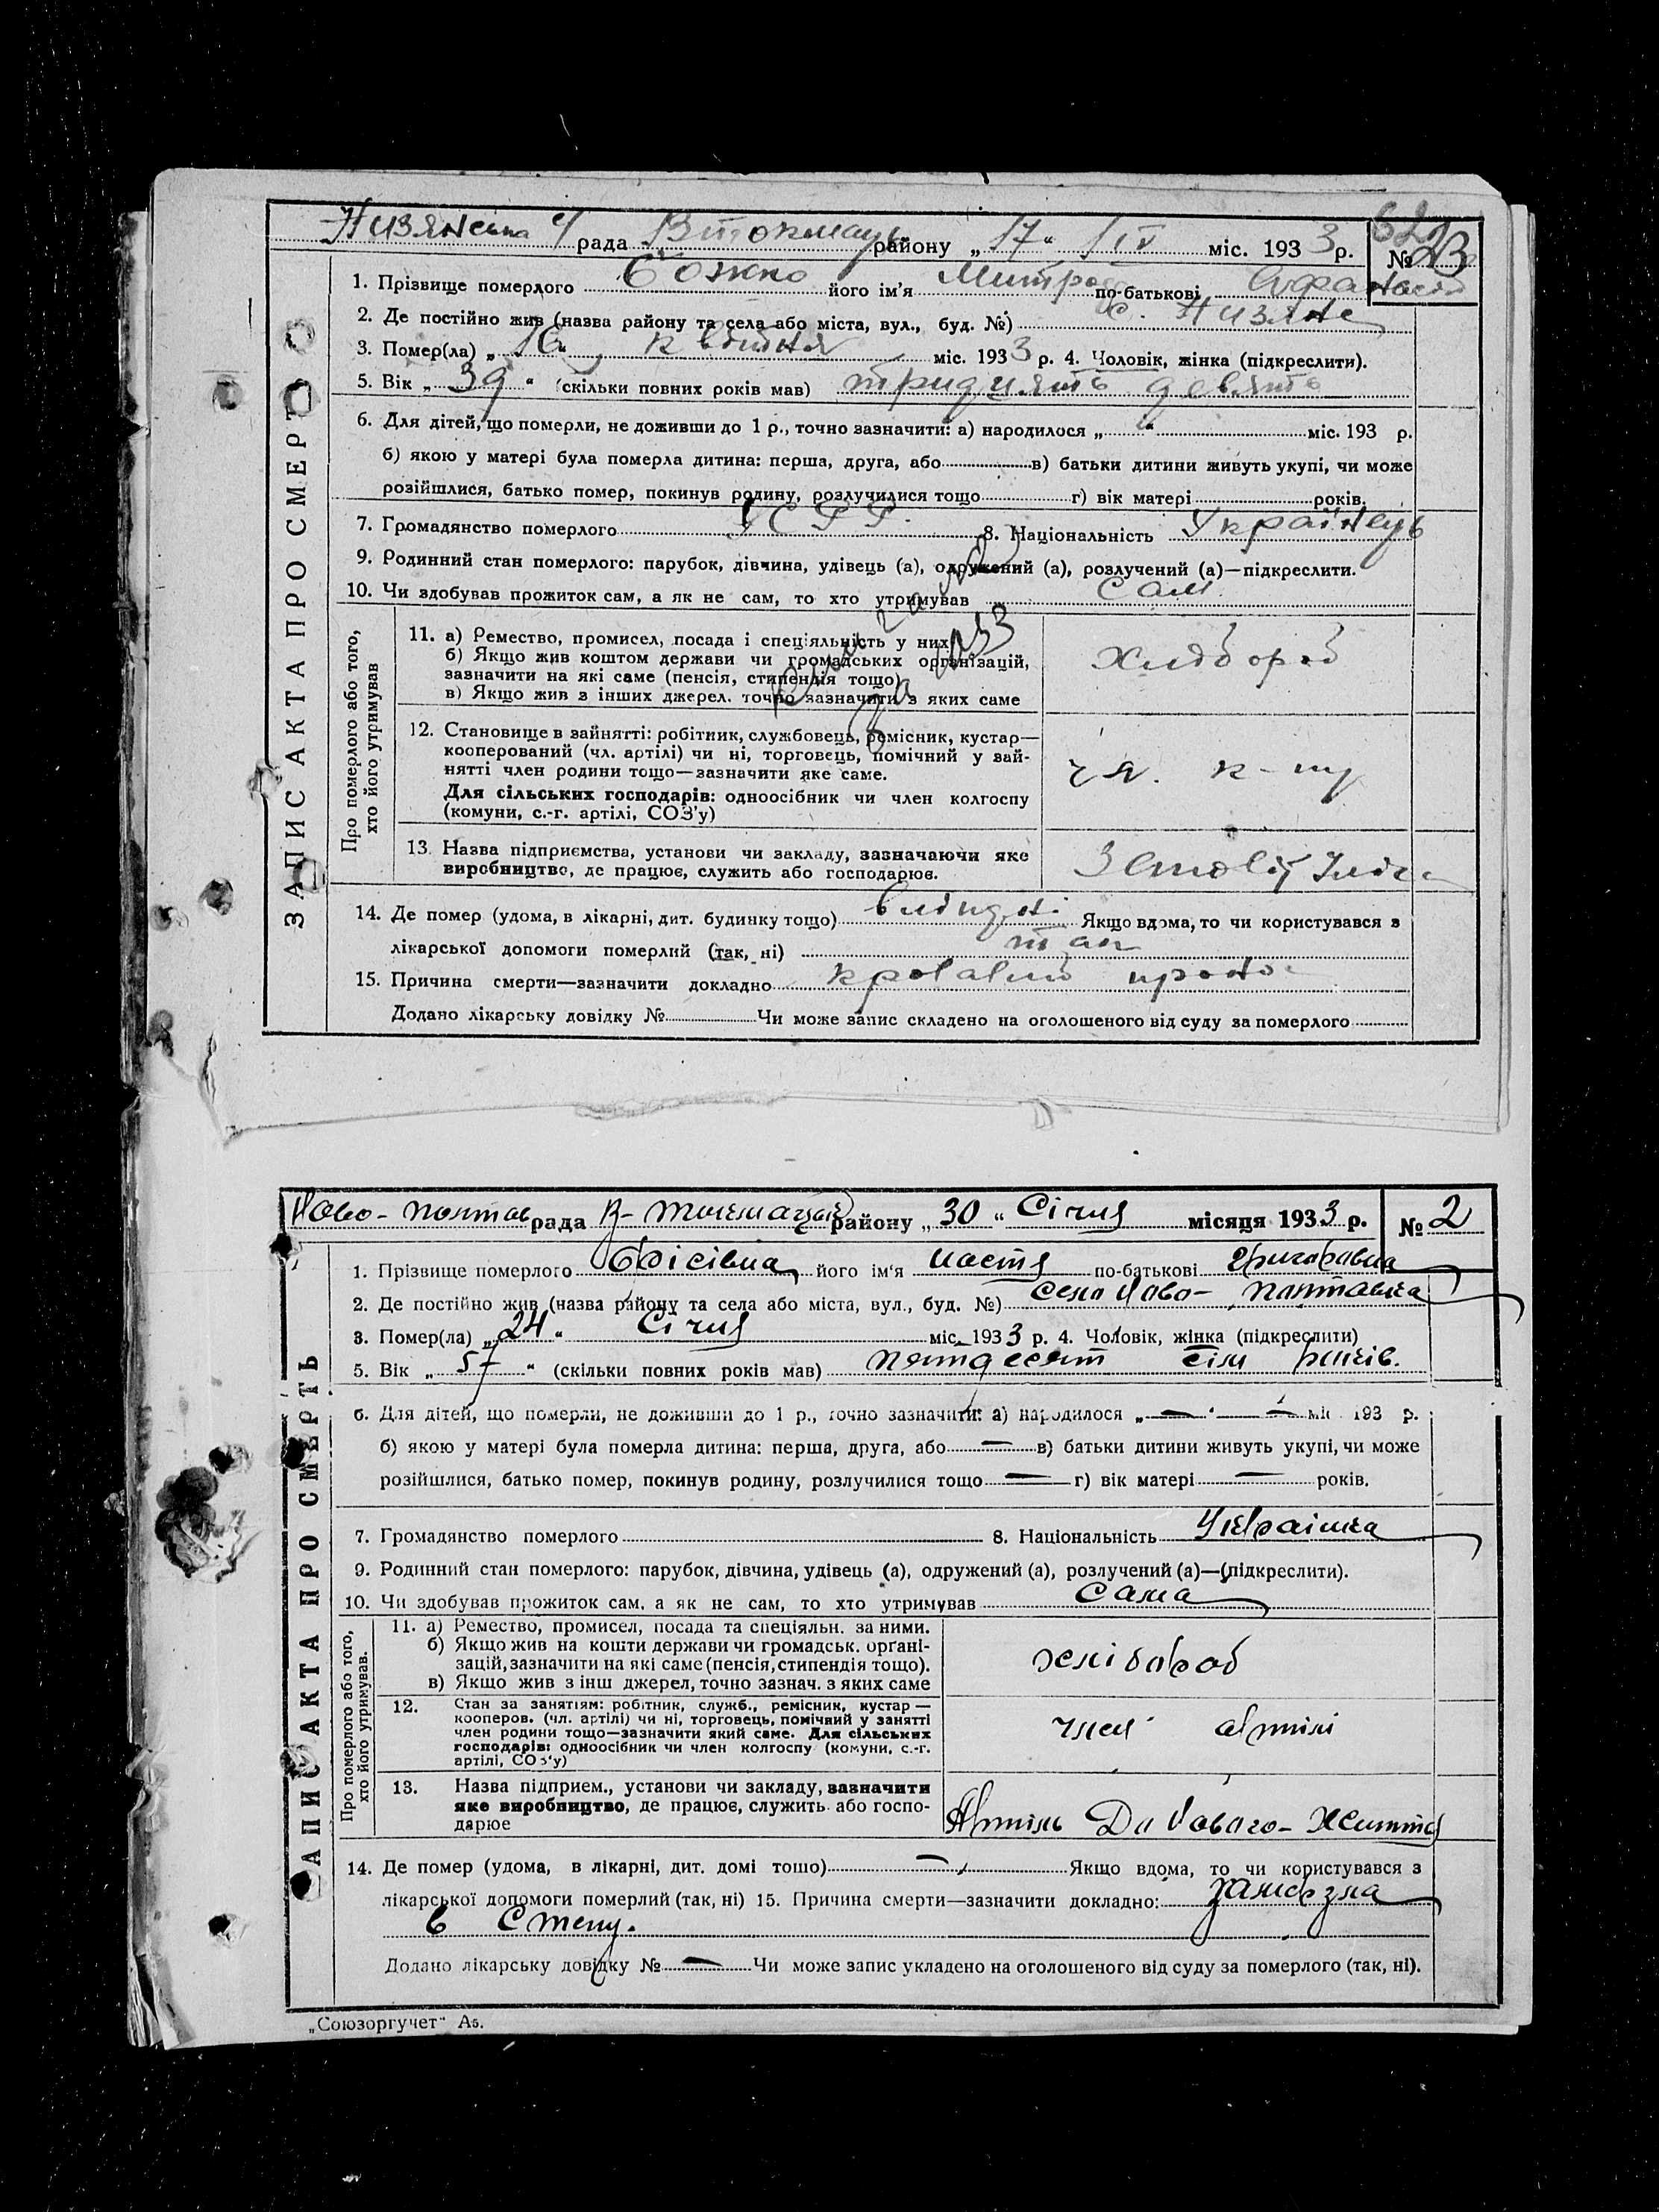 Низянська рада В Токмацьк району „17“ IV міс. 1933 р.
62
№ 23
ЗАПИС АКТА ПРО СМЕРТЬ
1. Прізвище померлого Божко його ім'я Митро по-батькові Афанасів
2. Де постійно жив (назва району та села або міста, вул., буд. №) с. Низяне
3. Помер(ла) „16“ квітня міс. 1933 р. 4. Чоловік, жінка (підкреслити).
5. Вік „39“ (скільки повних років мав) тридцять девять
6. Для дітей, що померли, не доживши до 1 р., точно зазначити: а) народилося „ “ міс. 193 р.
б) якою у матері була померла дитина: перша, друга, або в) батьки дитини живуть укупі, чи може
розійшлися, батько помер, покинув родину, розлучилися тощо г) вік матері років.
7. Громадянство померлого УСРР 8. Національність Українець
9. Родинний стан померлого: парубок, дівчина, удівець (а), одружений (а), розлучений (а)—підкреслити.
10. Чи здобував прожиток сам, а як не сам, то хто утримував сам
Про померлого або того,
хто його утримував
11. а) Ремество, промисел, посада і спеціяльність у них
б) Якщо жив коштом держави чи громадських організацій,
зазначити на які саме (пенсія, стипендія тощо)
в) Якщо жив з інших джерел. точно зазначити з яких саме
Хлібороб
за 1933
12. Становище в зайнятті: робітник, службовець, ремісник, кустар—
кооперований (чл. артілі) чи ні, торговець, помічний у зай-
нятті член родини тощо—зазначити яке саме.
Для сільських господарів: одноосібник чи член колгоспу
(комуни, с.-г. артілі, СОЗ'у)
чл. к-пу
13. Назва підприємства, установи чи закладу, зазначаючи яке
виробництво, де працює, служить або господарює.
Заповіт Ілліча
14. Де помер (удома, в лікарні, дит. будинку тощо) Якщо вдома, то чи користувався з
лікарської допомоги померлий (так, ні) так
15. Причина смерти—зазначити докладно кровавий пронос
Додано лікарську довідку № Чи може запис складено на оголошеного від суду за померлого
Ново-Полтав рада В-Токмацьк району „30“ Січня місяця 1933 р. № 2
ЗАПИС АКТА ПРО СМЕРТЬ
1. Прізвище померлого його ім'я Настя по-батькові Григоровна
2. Де постійно жив (назва району та села або міста, вул., буд. №) село Ново-Полтавка
3. Помер(ла) „24“ Січня міс. 1933 р. 4. Чоловік, жінка (підкреслити)
5. Вік „57“ (скільки повних років мав) пятдесят сім років.
6. Для дітей, що померли, не доживши до 1 р., точно зазначити: а) народилося „— “ — міс 193 р.
б) якою у матері була померла дитина: перша, друга, або — в) батьки дитини живуть укупі, чи може
розійшлися, батько помер, покинув родину, розлучилися тощо — г) вік матері — років.
7. Громадянство померлого 8. Національність Українка
9. Родинний стан померлого: парубок, дівчина, удівець (а), одружений (а), розлучений (а)—(підкреслити).
10. Чи здобував прожиток сам, а як не сам, то хто утримував Сама
Про померлого або того,
хто його утримував.
11. а) Ремество, промисел, посада та спеціяльн. за ними.
б) Якщо жив на кошти держави чи громадськ. органі-
зацій, зазначити на які саме (пенсія, стипендія тощо).
в) Якщо жив з інш джерел, точно зазнач. з яких саме
хлібороб
12. Стан за занятіям: робітник, служб., ремісник, кустар—
кооперов. (чл. артілі) чи ні, торговець, помічний у занятті
член родини тощо—зазначити який саме. Для сільських
господарів: одноосібник чи член колгоспу (комуни, с.-г.
артілі, СОЗ'у)
член артілі
13. Назва підприєм., установи чи закладу, зазначити
яке виробництво, де працює, служить або госпо-
дарює
Артіль До Нового-Життя
14. Де помер (удома, в лікарні, дит. домі тощо) — Якщо вдома, то чи користувався з
лікарської допомоги померлий (так, ні) 15. Причина смерти—зазначити докладно: замерзла
в степу.
Додано лікарську довідку № — Чи може запис укладено на оголошеного від суду за померлого (так, ні).
„Союзоргучет“ А5.